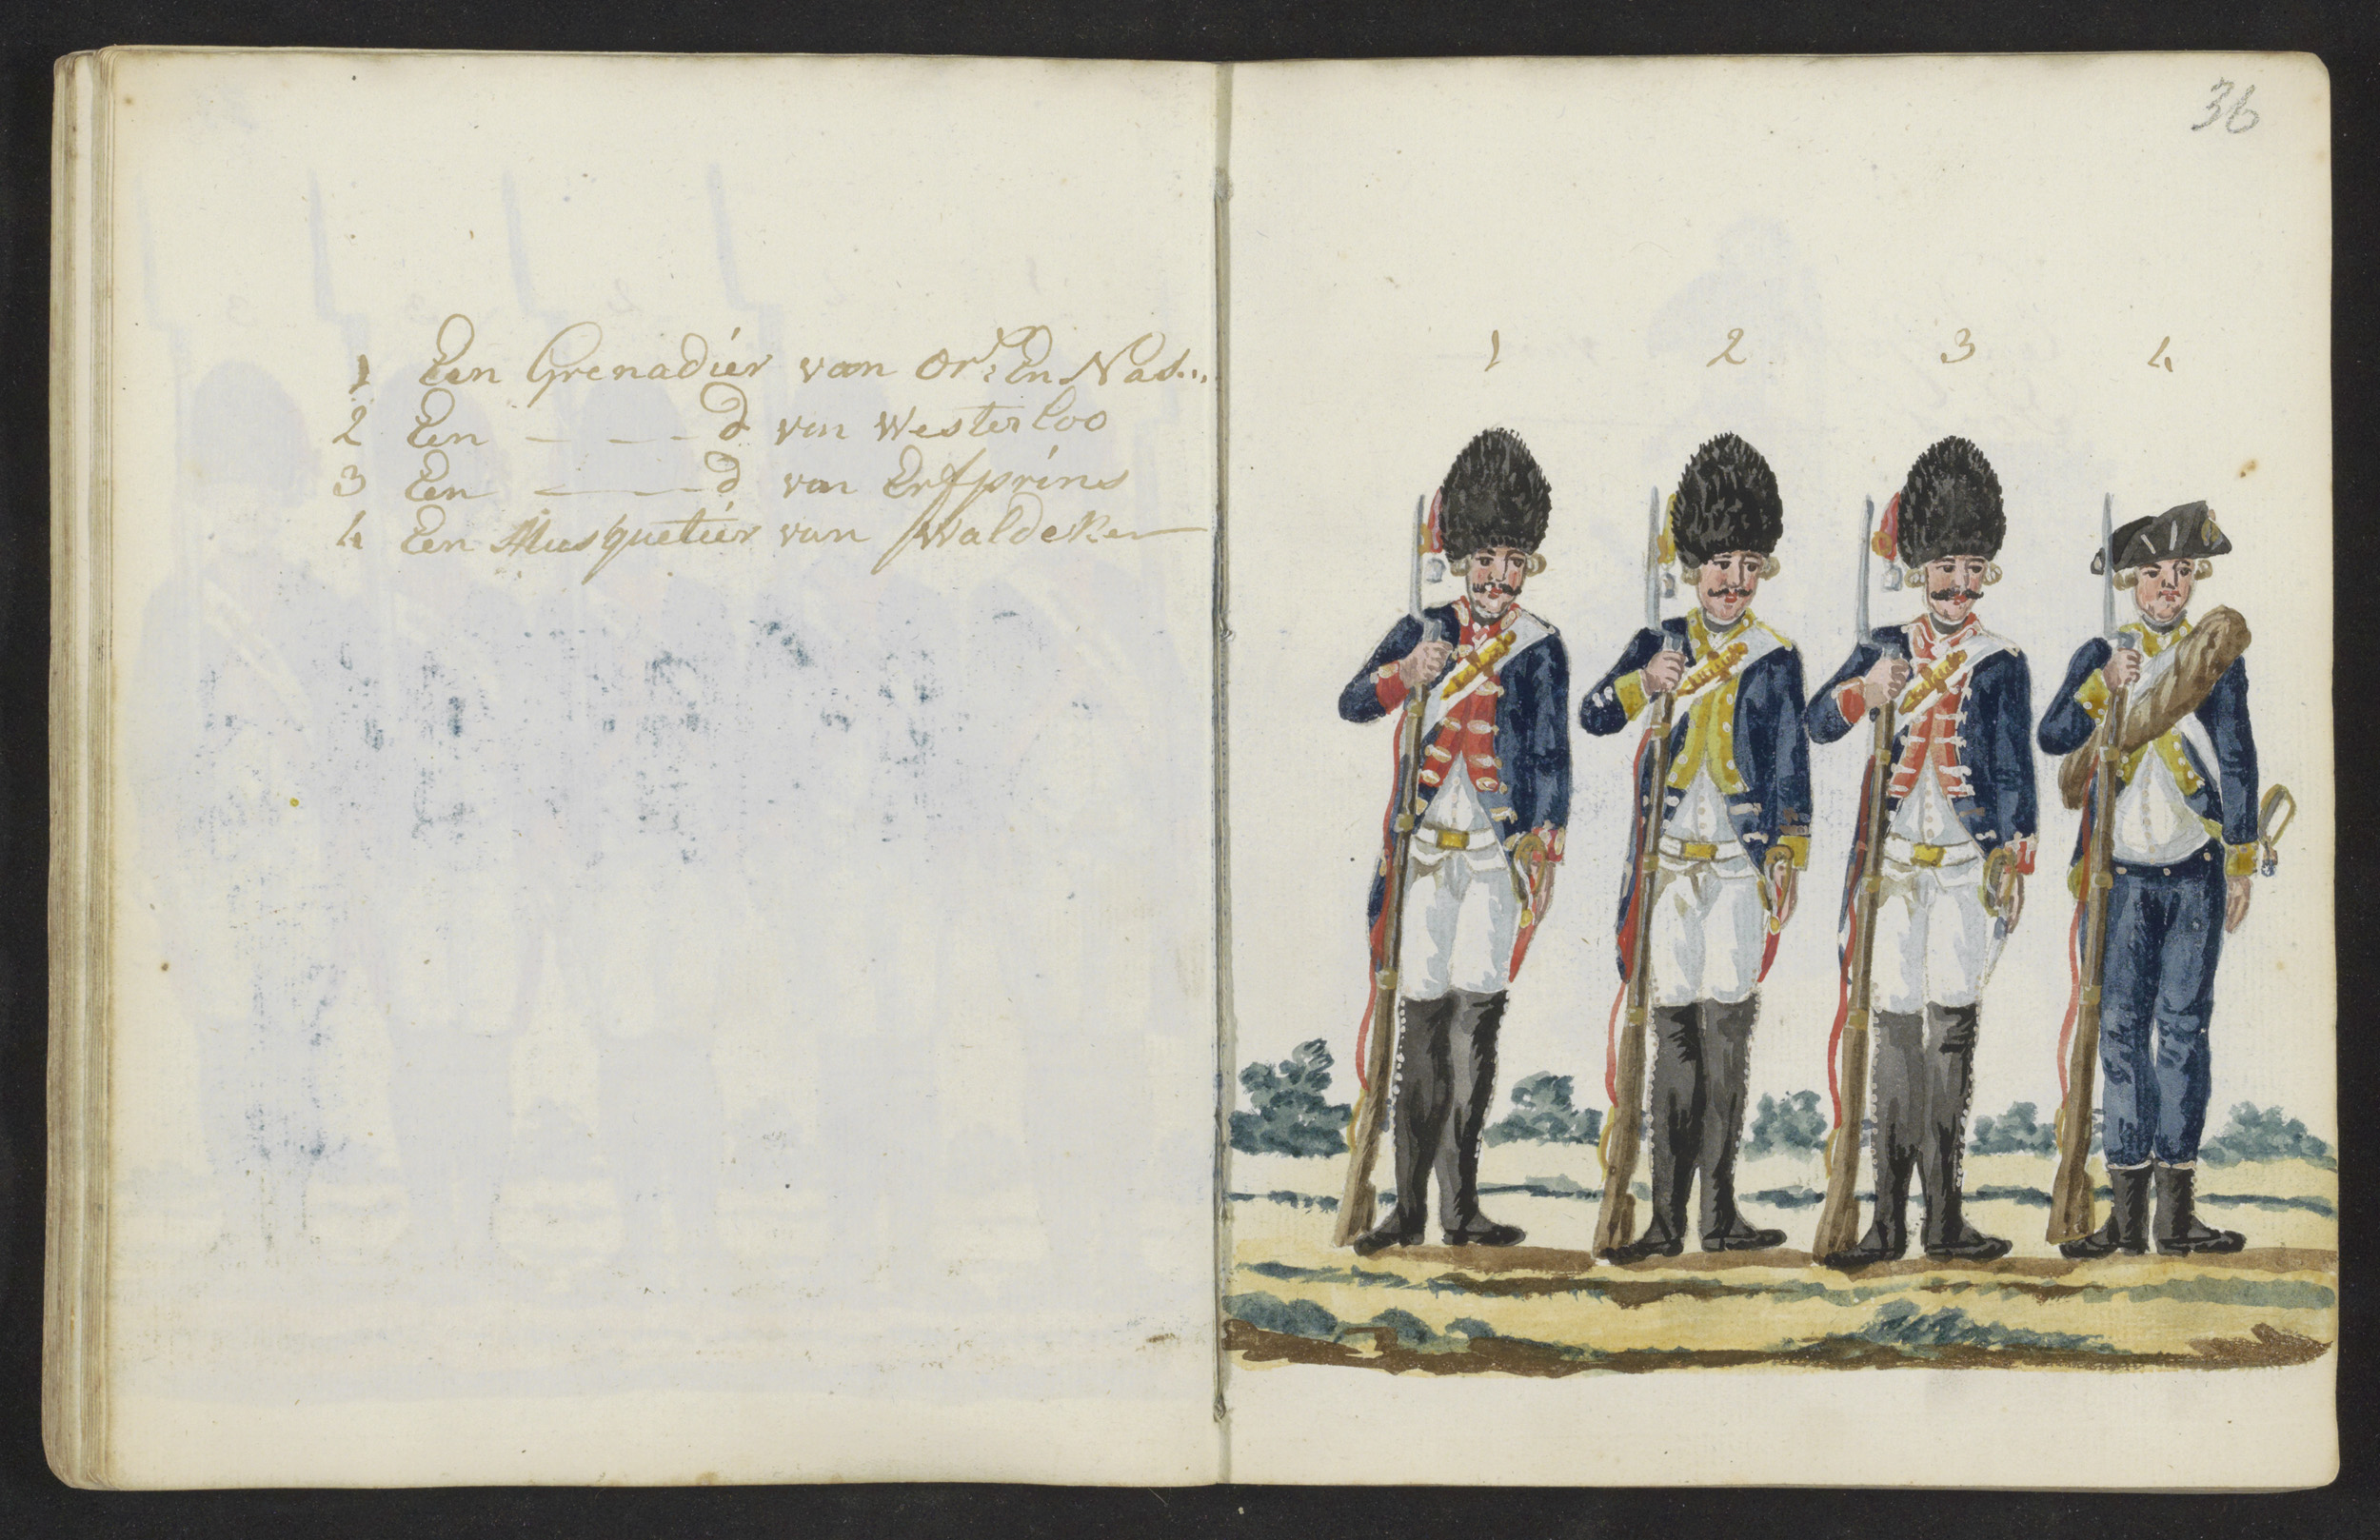 1 Een Grenadier van Or: En Nas..
2 Een - - - d van Westerloo
3 Een - - - d van Erfprins
4 Een Musquetier van Waldeker
36
1 2 3 4